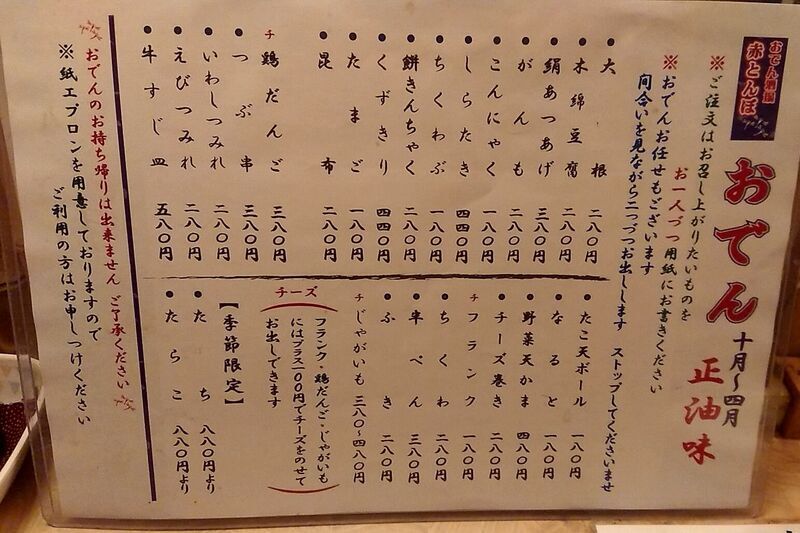 おでん酒場
赤とんぼ
おでん 十月~四月
正油味
※ご注文はお召し上がりたいものを
お一人づつ用紙にお書きください
※おでんお任せもございます
間合いを見ながら二つづつお出しします ストップしてくださいませ
●大根 二八〇円
●木綿豆腐 二八〇円
●絹あつあげ 三八〇円
●がんも 二八〇円
●こんにゃく 一八〇円
●しらたき 四四〇円
●ちくわぶ 一八〇円
●餅きんちゃく 二八〇円
●くずきり 四四〇円
●たまご 一八〇円
●昆布 二八〇円
チ 鶏だんご 三八〇円
●つぶ串 三八〇円
●いわしつみれ 二八〇円
●えびつみれ 二八〇円
●牛すじ皿 五八〇円
●たこ天ボール 一八〇円
●なると 一八〇円
●野菜天かま 四八〇円
●チーズ巻き 二八〇円
チ フランク 一八〇円
●ちくわ 二八〇円
●半ぺん 三八〇円
●ふき 二八〇円
チ じゃがいも 三八〇~四八〇円
チーズ
フランク・鶏だんご・じゃがいも
にはプラス一〇〇円でチーズをのせて
お出しできます
【季節限定】
●たち 八八〇円より
●たらこ 八八〇円より
おでんのお持ち帰りは出来ません ご了承ください
※紙エプロンを用意しておりますので
ご利用の方はお申しつけください